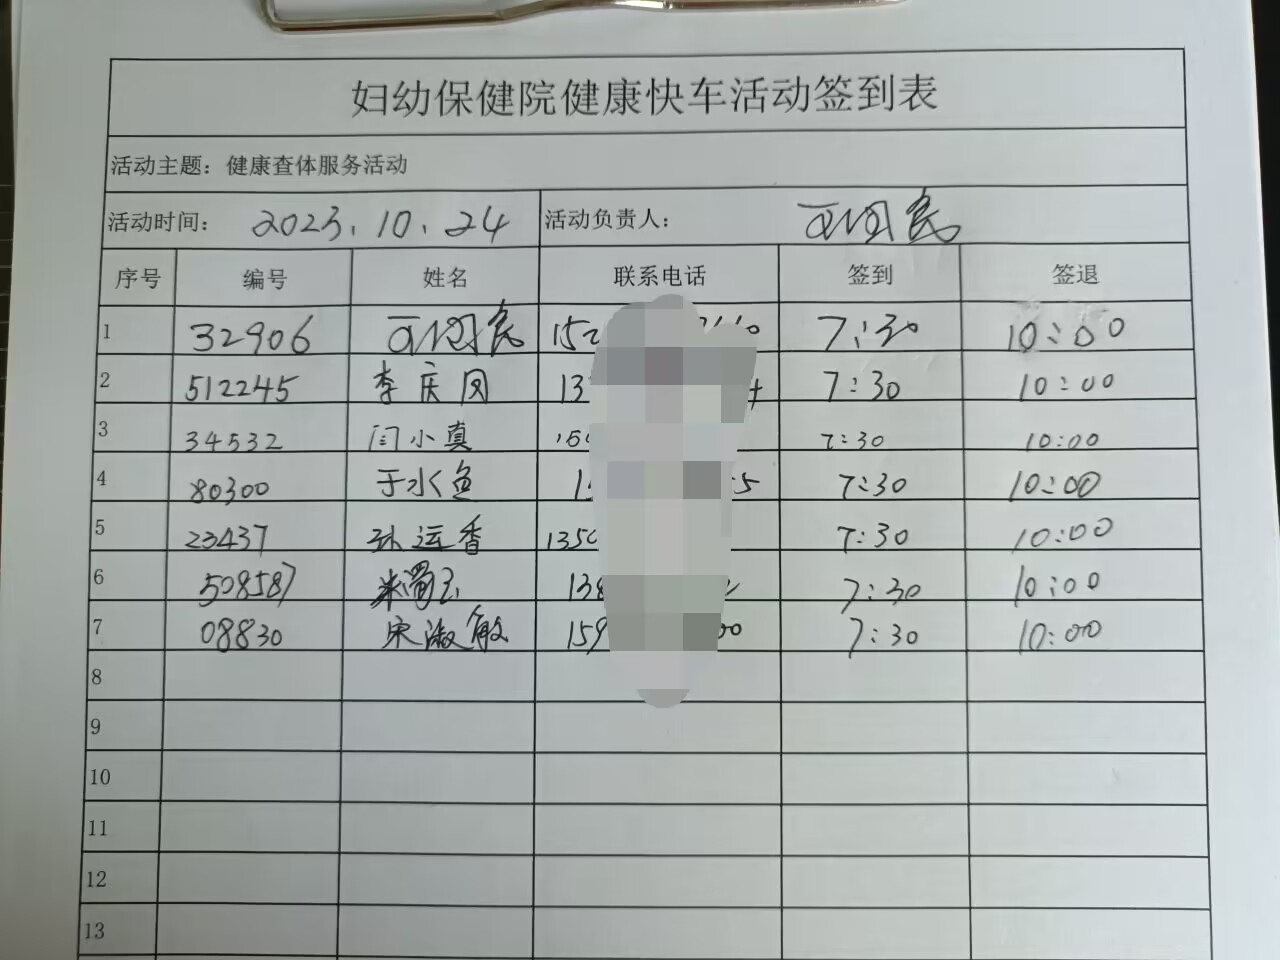 妇幼保健院健康快车活动签到表
活动主题：健康查体服务活动
活动时间： 2023.10.24 活动负责人：
序号 编号 姓名 联系电话 签到 签退
1 32906 152 7:30 10:00
2 512245 李庆凤 13 7:30 10:00
3 34532 闫小真 150 7:30 10:00
4 80300 于水鱼 1 5 7:30 10:00
5 23437 孙运香 1350 7:30 10:00
6 508587 138 7:30 10:00
7 08830 宋淑敏 159 00 7:30 10:00
8
9
10
11
12
13